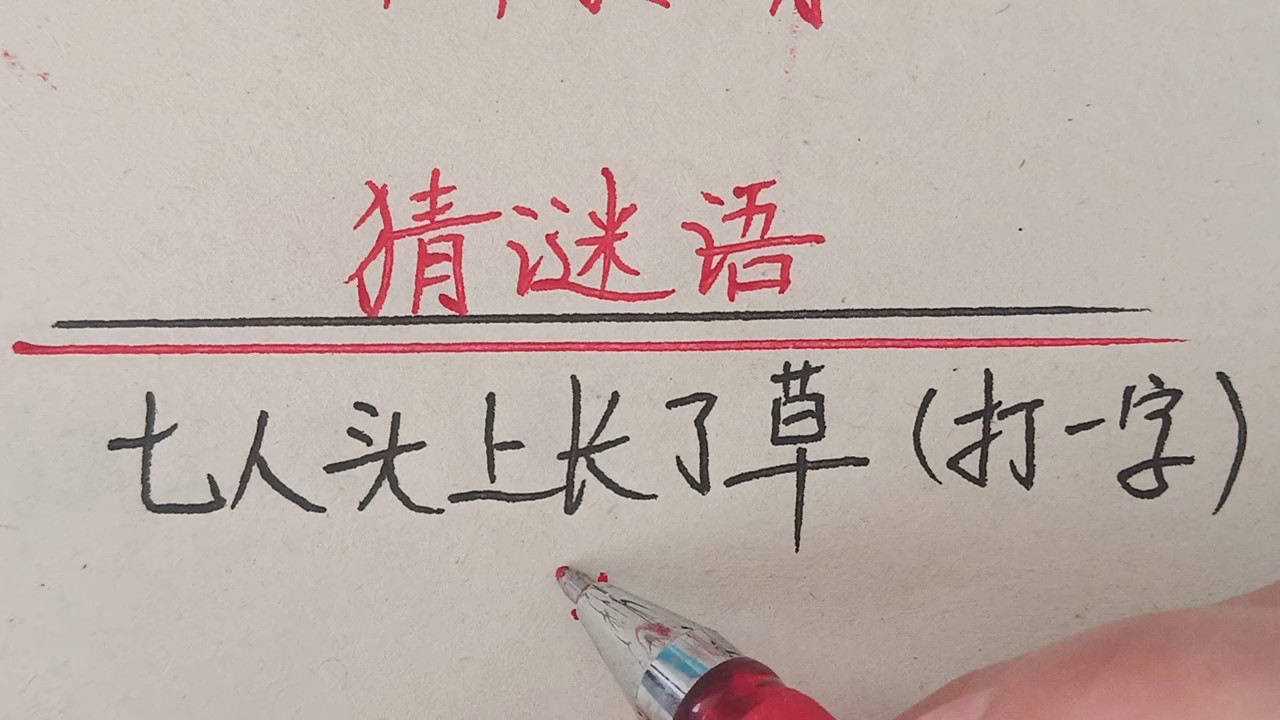 猜谜语
七人头上长了草(打一字)